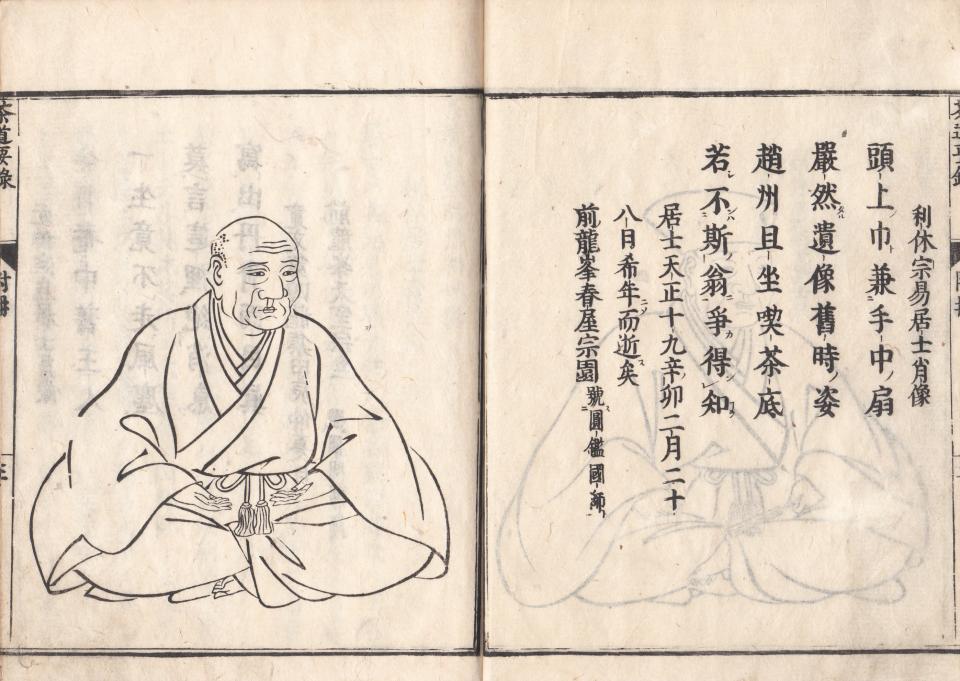 利休宗易居士肖像
頭上巾兼手中扇
嚴然遺像舊時姿
趙州且坐喫茶底
若不斯翁爭得知
居士天正十九辛卯二月二十
八日希年而逝矣
前龍峯春屋宗園號圓鑑國師
茶道要錄
附冊